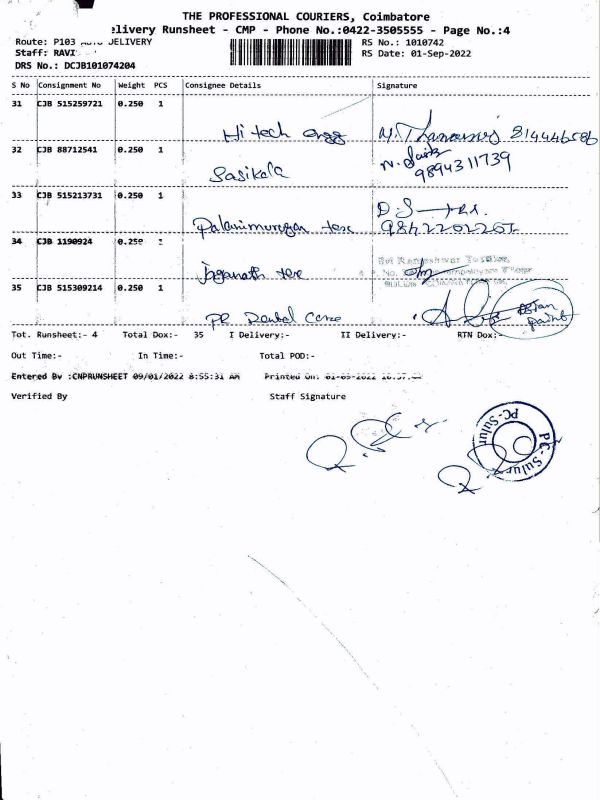 THE PROFESSIONAL COURIERS, Coimbatore
elivery Runsheet - CMP - Phone No.:0422-3505555 - Page No.:4
Route: P103 AUTO DELIVERY
RS No.: 1010742
Staff: RAVI
RS Date: 01-Sep-2022
DRS No.: DCJB101074204
S No Consignment No Weight PCS Consignee Details Signature
31 CJB 515259721 0.250 1
Hi tech engg 
32 CJB 88712541 0.250 1
Sasikala 9894311739
33 CJB 515213731 0.250 1
Palanimurugan tex
34 CJB 1190924 0.250
Jaganath tex
35 CJB 515309214 0.250 1
Dental Care
Tot. Runsheet:- 4 Total Dox:- 35 I Delivery:- II Delivery:- RTN Dox:-
Out Time:- In Time:- Total POD:-
Entered By :CNPRUNSHEET 09/01/2022 8:55:31 AM Printed On:
Verified By Staff Signature
PC-Sulur
PC-Sulur